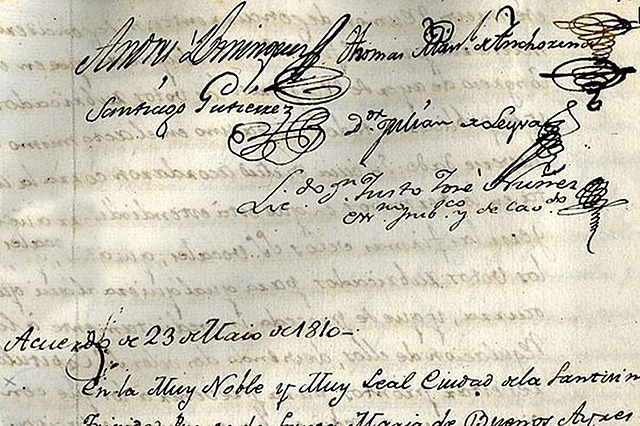 Andrés Domínguez Thomas Man.l de Anchorena
Santiago Gutierrez
D.or Julián de Leyva
Lic.do dn. Justo José Núñez
ess.no pub.co y de Cav.do
Acuerdo de 23 de Maio de 1810
En la Muy Noble y Muy Leal Ciudad de la Santisim
Trinidad Puerto de Santa Maria de Buenos Ayres